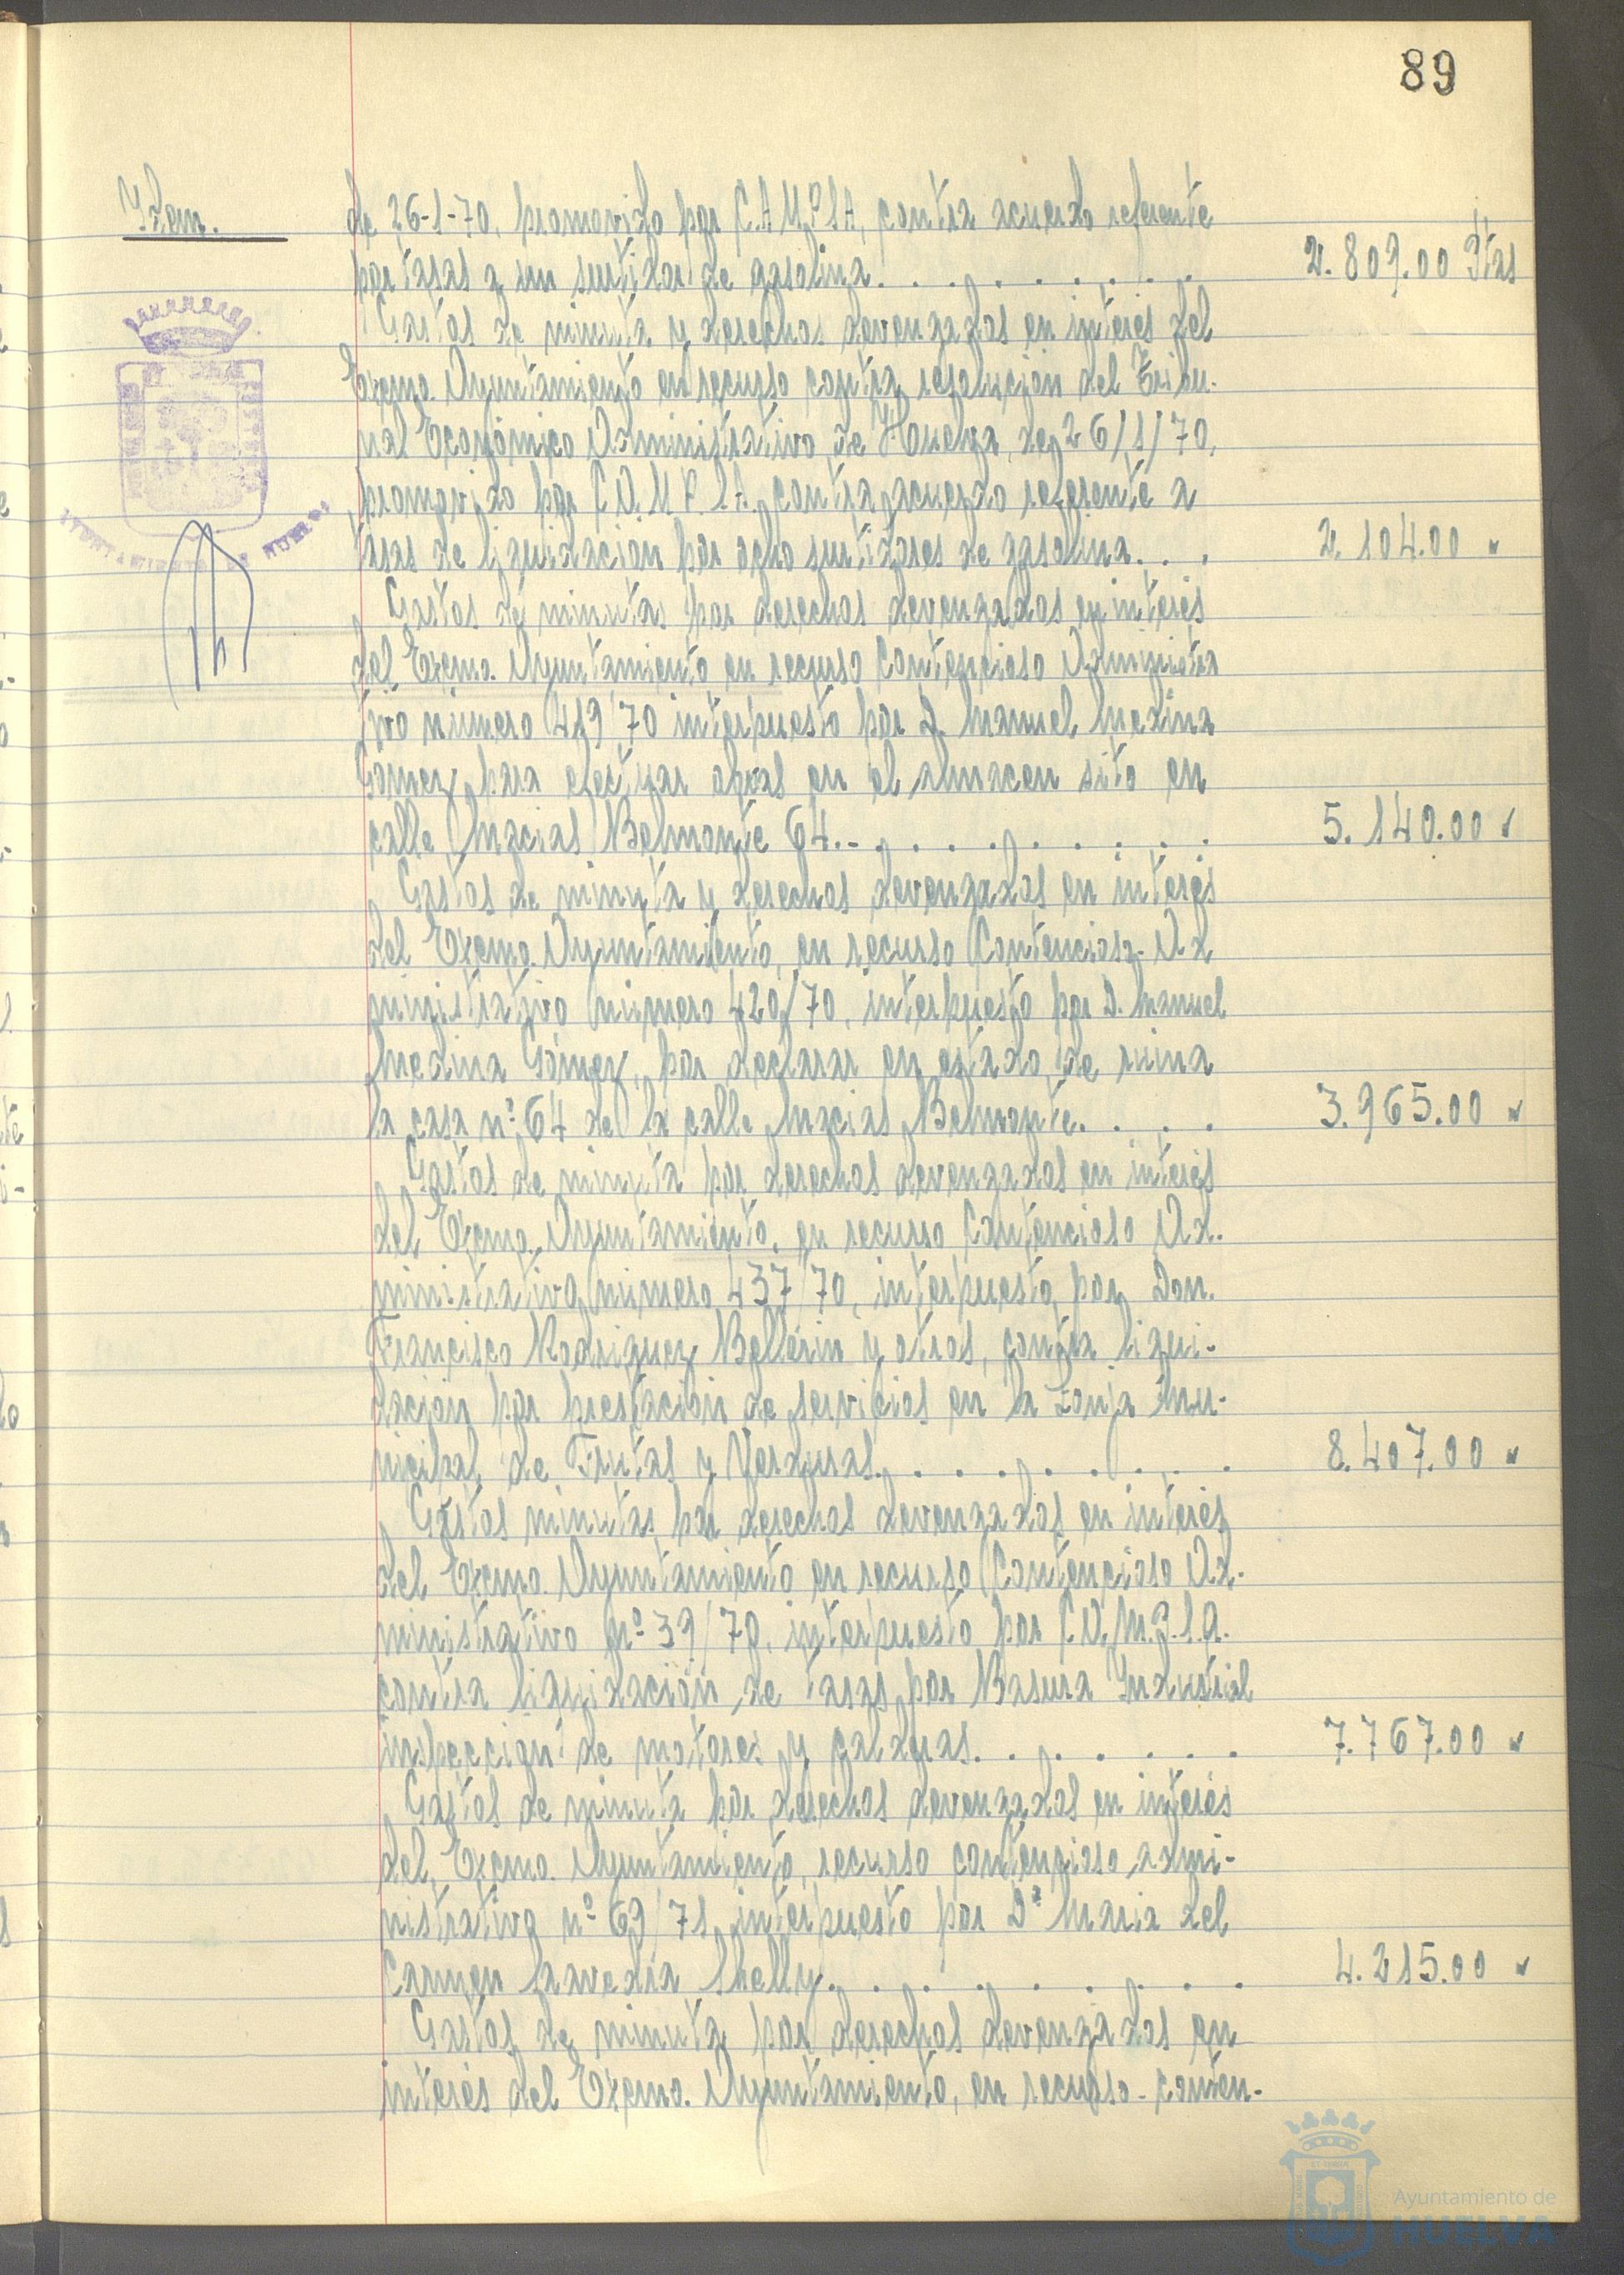 89
Idem.
de 26-1-70, promovido por C.A.M.P.S.A, contra acuerdo referente
por tasas a un surtidor de gasolina. . . . . . . . . 2.809.00 Ptas
Gastos de minuta y derechos devengados en interés del
Excmo. Ayuntamiento en recurso contra resolución del Tribu-
nal Económico Administrativo de Huelva, de 26/1/70,
promovido por C.A.M.P.S.A. contra acuerdo referente a
tasas de liquidación por ocho surtidores de gasolina. . . 2.104.00 "
AYUNTAMIENTO DE HUELVA
Gastos de minutas por derechos devengados en interés
del Excmo. Ayuntamiento en recurso Contencioso Administra
tivo número 419/70 interpuesto por D. Manuel Medina
Gómez para efectuar obras en el almacen sito en
calle Macias Belmonte 64.- . . . . . . . . . 5.140.00 "
Gastos de minuta y derechos devengados en interés
del Excmo. Ayuntamiento, en recurso Contencioso-Ad
ministrativo número 420/70, interpuesto por D. Manuel
Medina Gómez, por declarar en estado de ruina
la casa nº 64 de la calle Macias Belmonte. . . . 3.965.00 "
Gastos de minuta por derechos devengados en interés
del Excmo. Ayuntamiento, en recurso Contencioso Ad-
ministrativo número 437/70, interpuesto por Don.
Francisco Rodriguez Bellerin y otros, contra liqui-
dación por prestación de servicios en la Lonja Mu-
nicipal de Frutas y Verduras. . . . . . . . . 8.407.00 "
Gastos minutas por derechos devengados en interés
del Excmo. Ayuntamiento en recurso Contencioso Ad-
ministrativo nº 39/70, interpuesto por C.A.M.P.S.A.
contra liquidación de tasas por Basura Industrial
inspección de motores y calderas. . . . . . . 7.767.00 "
Gastos de minuta por derechos devengados en interés
del Excmo. Ayuntamiento, recurso contencioso admi-
nistrativo nº 69/71 interpuesto por Dª Maria del
Carmen Saavedra Shelly. . . . . . . . . 4.215.00 "
Gastos de minuta por derechos devengados en
interés del Excmo. Ayuntamiento, en recurso-conten-
Ayuntamiento de
HUELVA